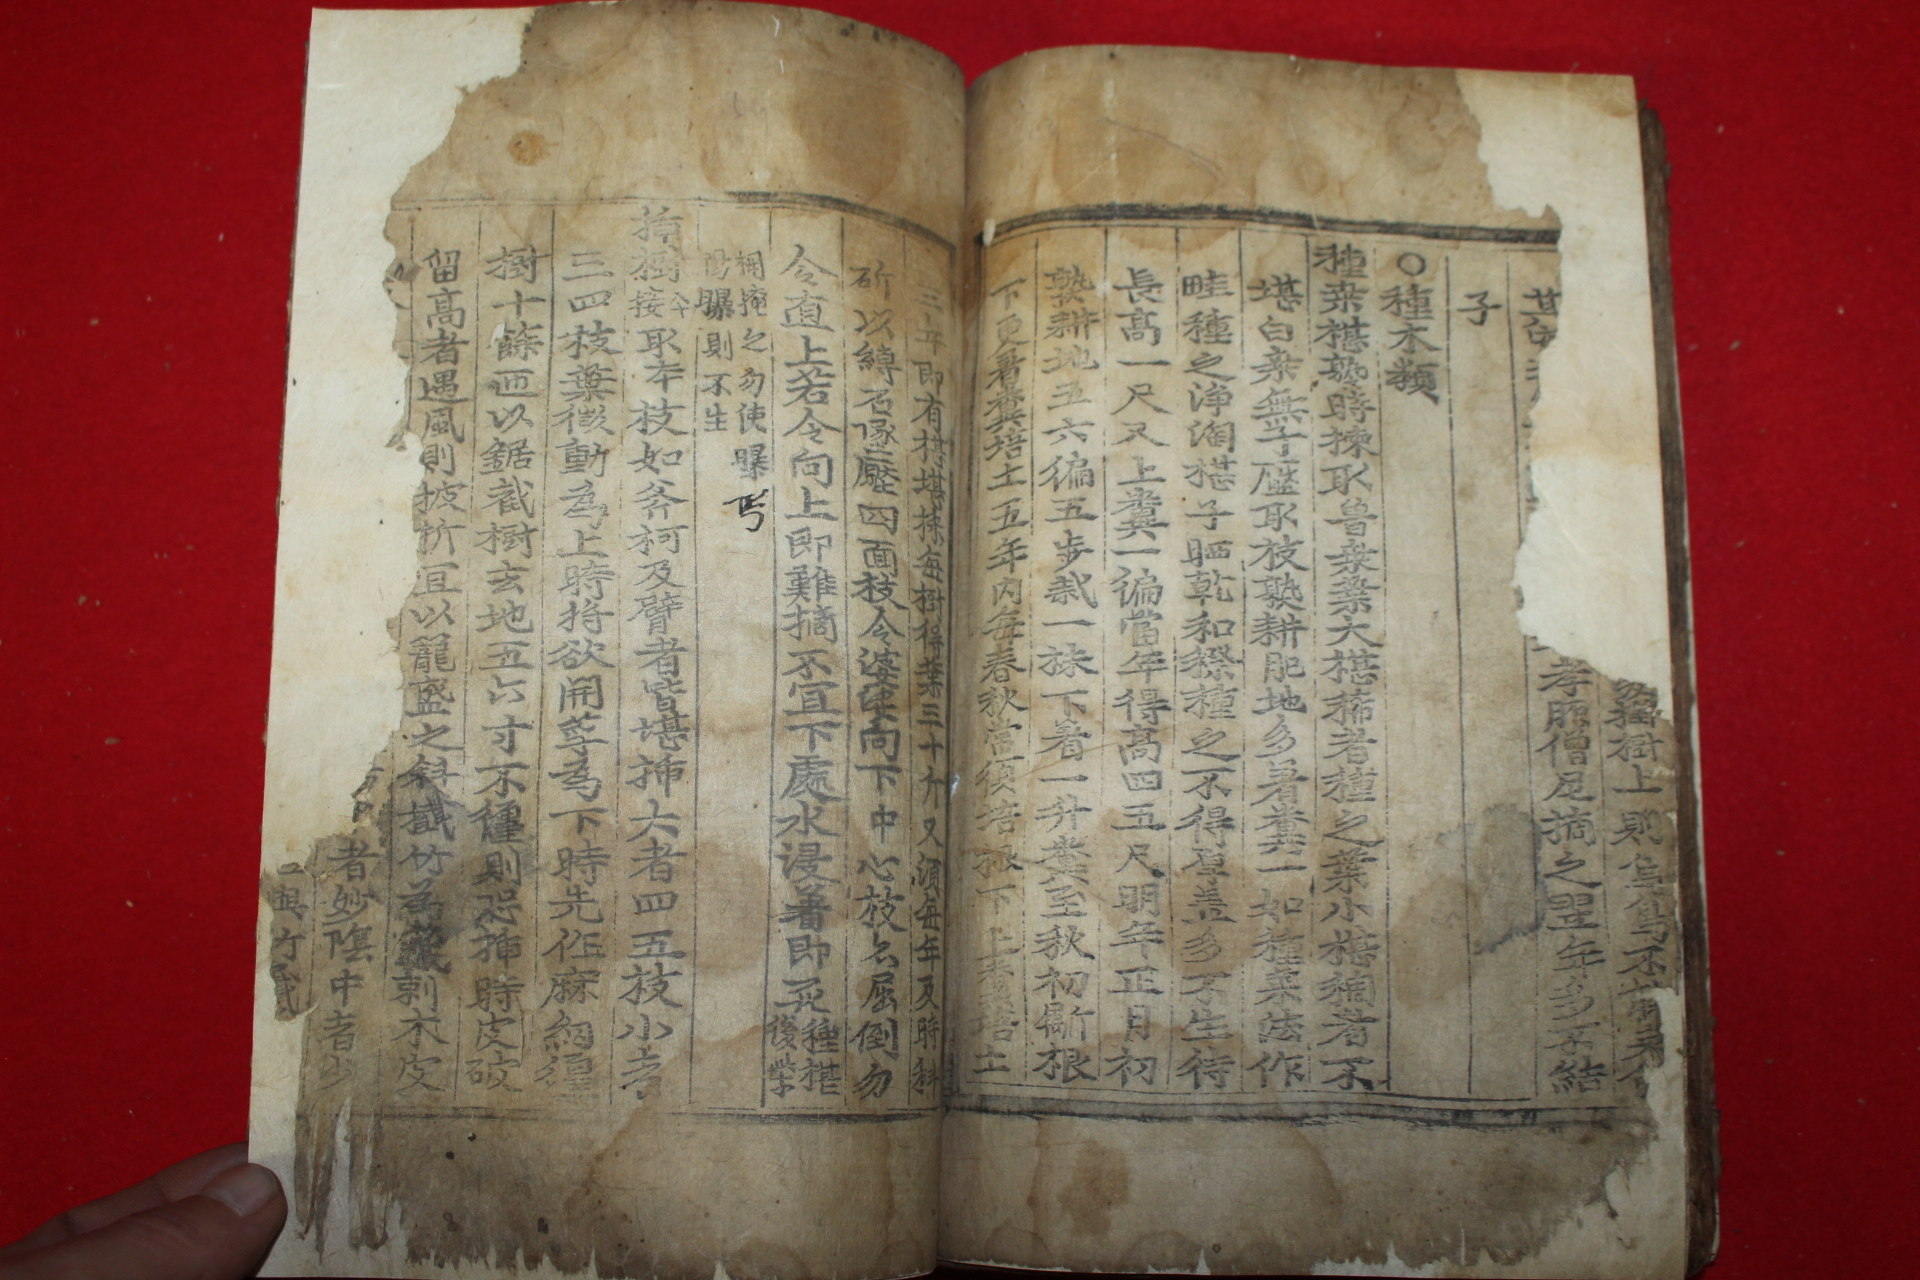 掛樹上則隹鳥不
孝服僧尼摘之翌年多不結
子
○種木類
種桒椹熟時揀取魯桒葉大椹稀者種之葉小椹稠者不
堪白桒無子壓取枝熟耕肥地多着糞一如種菜法作
畦種之淨淘椹子晒乾和穄種之不得厚盖多不生待
長高一尺又上糞一徧當年得高四五尺明年正月初
熟耕地五六徧五步栽一株下着一升糞至秋初斸根
下更着糞培土五年內每春秋當須培根下上糞培土
三五年即有椹堪採每樹得葉三十斤又湏每年及時科
斫以縛石墜壓四面枝令婆娑向下中心枝亦屈倒勿
令直上若令向上即難摘不宜下處水浸着即死種椹後學
棚掩之勿使曝
陽曝則不生
丐
揷樹接仝取本枝如斧柯及臂者皆堪揷大者四五枝小者
三四枝葉微動爲上時持欲開莩爲下時先作麻紉纒
樹十餘匝以鋸截樹去地五六寸不纒則恐揷時皮破
留高者遇風則披折宜以籠盛之斜攕竹爲籤刺木皮
者妙陰中者少
與竹籤